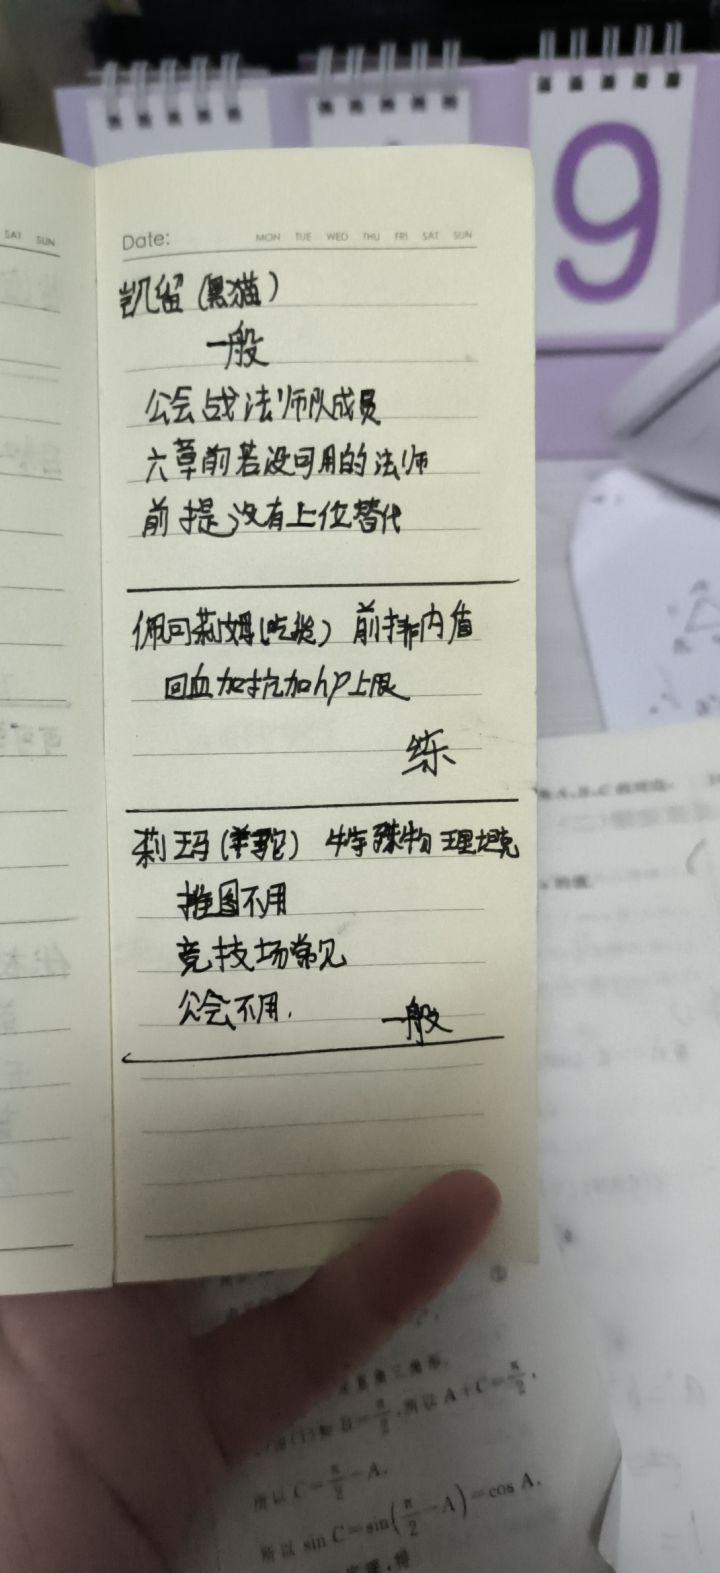 9
SAT SUN
Date: MON TUE WED THU FRI SAT SUN
凯留（黑猫）
一般
公会战法师队成员
六章前若没可用的法师
前提没有上位替代
佩可莉姆（吃货） 前排肉盾
回血加抗加hp上限
练
莉玛（羊驼） 特殊物理坦克
推图不用
竞技场常见
公会不用.
一般
所以 A+C=π/2,
所以 C=π/2-A,
所以 sin C=sin(π/2-A)=cos A.